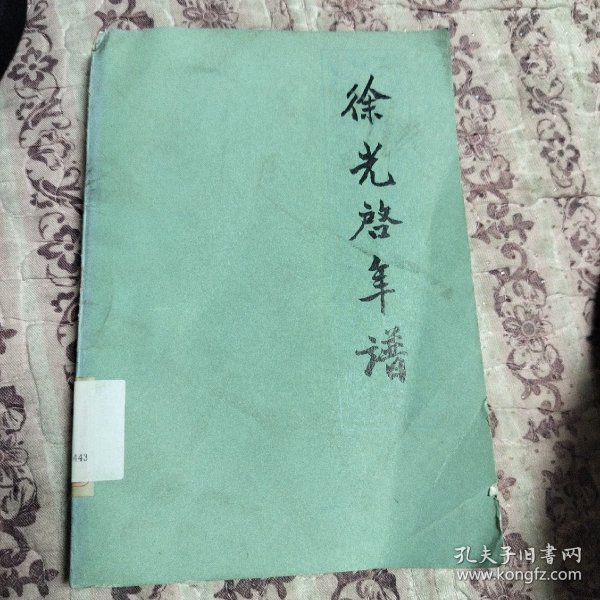 徐光啓年谱
443
孔夫子旧書网
www.kongfz.com